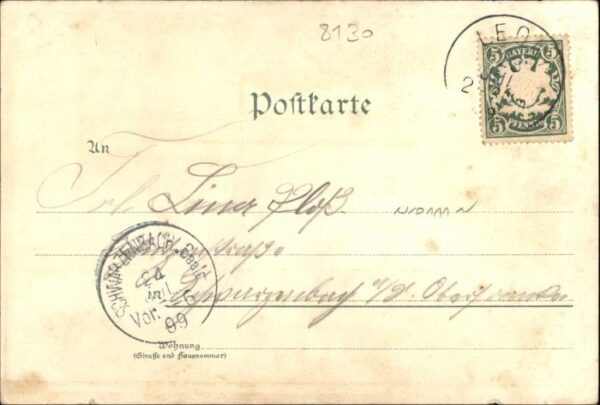 8130
LEO
2
5 BAYERN 5
5 PFENNIG 5
Postkarte
An
Frl. Lina Ploß.
straße
Schwarzenbach a/S. Oberfranken
SCHWARZENBACH, Saale
24
VII
Vor.
99
Wohnung
(Straße und Hausnummer)